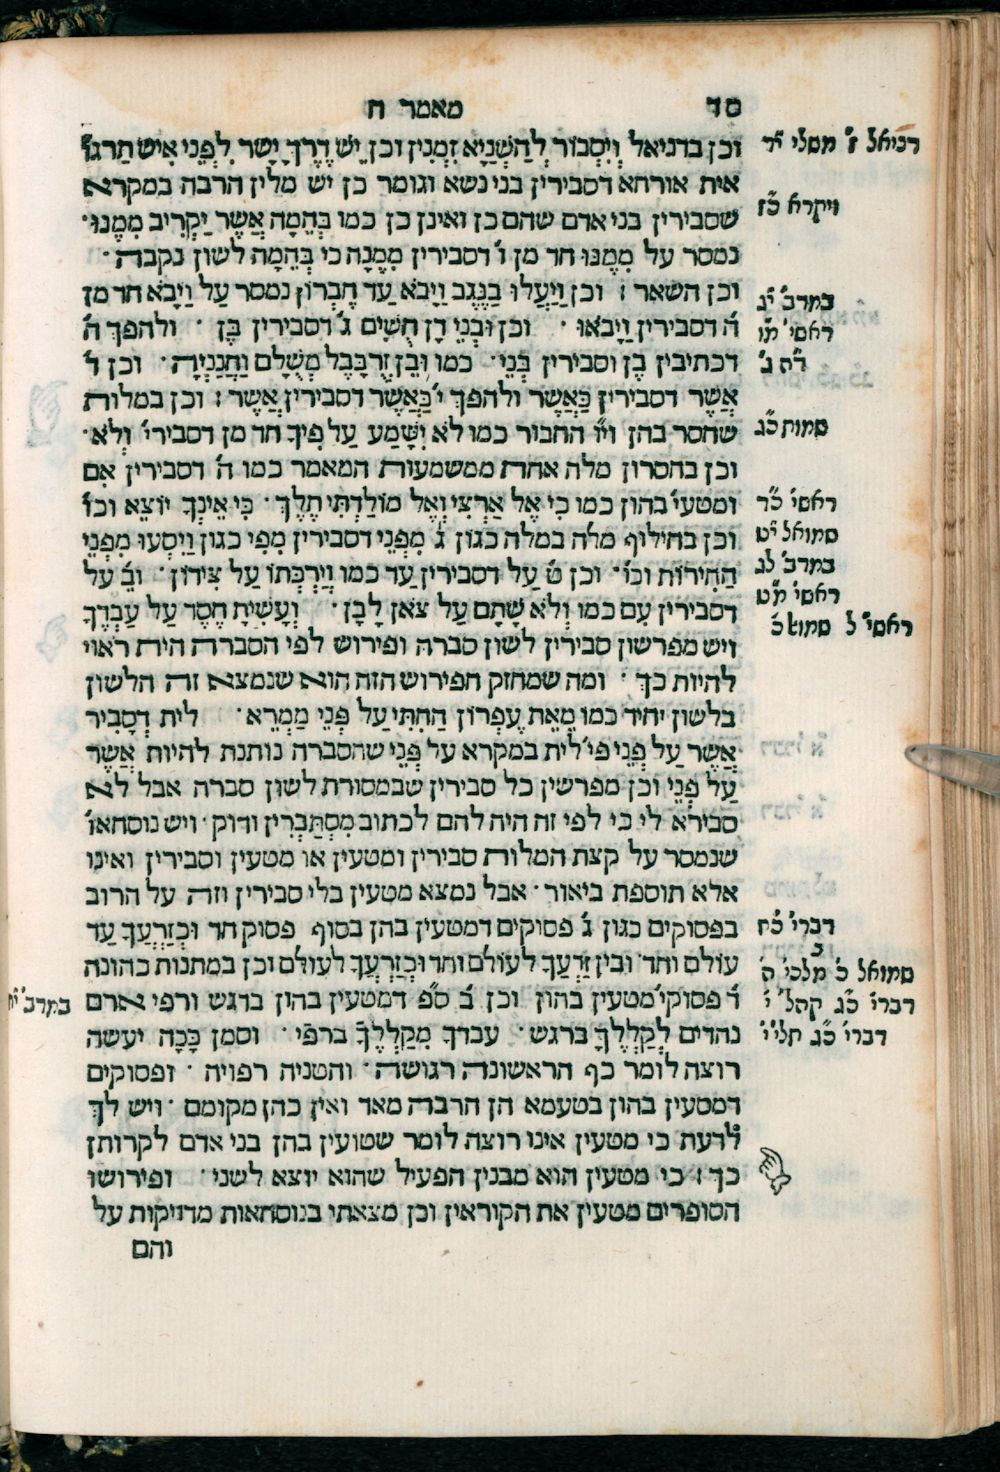 סד
מאמר ח
וכן בדניאל וְיִסְבּוֹר לְהַשְׁנָיָא זִמְנִין וכן יֵשׁ דֶּרֶךְ יָשָׁר לִפְנֵי אִישׁ תרגו'
אית אורחא דסבירין בני נשא וגומר כן יש מלין הרבה במקרא
שסבירין בני אדם שהם כן ואינן כן כמו בְּהֵמָה אֲשֶׁר יַקְרִיב מִמֶּנּוּ·
נמסר על מִמֶּנּוּ חד מן ו' דסבירין מִמֶּנָּה כי בְּהֵמָה לשון נקבה·
וכן השאר : וכן וַיַּעֲלוּ בַנֶּגֶב וַיָּבֹא עַד חֶבְרוֹן נמסר על וַיָּבֹא חד מן
ח' דסבירין וַיָּבֹאוּ · וכן וּבְנֵי דָן חֻשִׁים ג' דסבירין בֶּן · ולהפך ה'
דכתיבין בֶן וסבירין בְּנֵי· כמו וּבֶן זְרֻבָּבֶל מְשֻׁלָּם וַחֲנַנְיָה· וכן ד'
אֲשֶׁר דסבירין כַּאֲשֶׁר ולהפך י' כַּאֲשֶׁר דסבירין אֲשֶׁר : וכן במלות
שחסר בהן וי"ו החבור כמו לֹא יִשָּׁמַע עַל פִּיךָ חד מן דסבירי' וְלֹא·
וכן בחסרון מלה אחת ממשמעות המאמר כמו ה' דסבירין אִם
ומטעי' בהון כמו כִּי אֶל אַרְצִי וְאֶל מוֹלַדְתִּי תֵּלֵךְ· כִּי אֵינְךָ יוֹצֵא וכו'
וכן בחילוף מלה במלה כגון ג' מִפְּנֵי דסבירין מִפִּי כגון וַיִּסְעוּ מִפְּנֵי
הַחִירוֹת וכו'· וכן ט' עַל דסבירין עַד כמו וְיַרְכָתוֹ עַל צִידוֹן· וב' עַל
דסבירין עִם כמו וְלֹא שָׁתָם עַל צֹאן לָבָן· וְעָשִׂיתָ חֶסֶד עַל עַבְדֶּךָ
ויש מפרשין סבירין לשון סברה ופירוש לפי הסברה היה ראוי
להיות כך· ומה שמחזק הפירוש הזה הוא שנמצא זה הלשון
בלשון יחיד כמו מֵאֵת עֶפְרוֹן הַחִתִּי עַל פְּנֵי מַמְרֵא· לית דְּסָבִיר
אֲשֶׁר עַל פְּנֵי פי' לית במקרא על פְּנֵי שהסברה נותנת להיות אֲשֶׁר
עַל פְּנֵי וכן מפרשין כל סבירין שבמסורת לשון סברה אבל לא
סבירא לי כי לפי זה היה להם לכתוב מִסְתַּבְּרִין ודוק· ויש נוסחאו'
שנמסר על קצת המלות סבירין ומטעין או מטעין וסבירין ואינו
אלא תוספת ביאור· אבל נמצא מטעין בלי סבירין וזה על הרוב
בפסוקים כגון ג' פסוקים דמטעין בהן בסוף פסוק חד וּבְזַרְעֲךָ עַד
עוֹלָם וחד ובין זַרְעֲךָ לְעוֹלָם וחד וּבְזַרְעֲךָ לְעוֹלָם וכן במתנות כהונה
ו' פסוקי' מטעין בהון וכן ב' ס"פ דמטעין בהון בדגש ורפי ארם
נהרים לְקַלְלֶךָּ בדגש· עבדך מְקַלְלֶךָ ברפי· וסמן כָּכָה יעשה
רוצה לומר כף הראשונה דגושה· והשניה רפויה· ופסוקים
דמטעין בהון בטעמא הן הרבה מאד ואין כהן מקומם· ויש לך
לדעת כי מטעין אינו רוצה לומר שטועין בהן בני אדם לקרותן
כך : כי מטעין הוא מבנין הפעיל שהוא יוצא לשני· ופירושו
הסופרים מטעין את הקוראין וכן מצאתי בנוסחאות מדויקות על
והם
דניאל ז' משלי י"ד
ויקרא כ"ז
במדב' י"ג
ראשי' מ"ו
ד"ה ג'
שמות כ"ג
ראשי' כ"ד
שמואל י"ט
במדב' לג
ראשי' מ"ט
ראשי' ל' שמוש' כ'
דברי' כ"ח
שמואל כ' מלכי' ה'
ב
דברי' כ"ג קהל' י'
דברי' כ"ג
במדב' י"ח